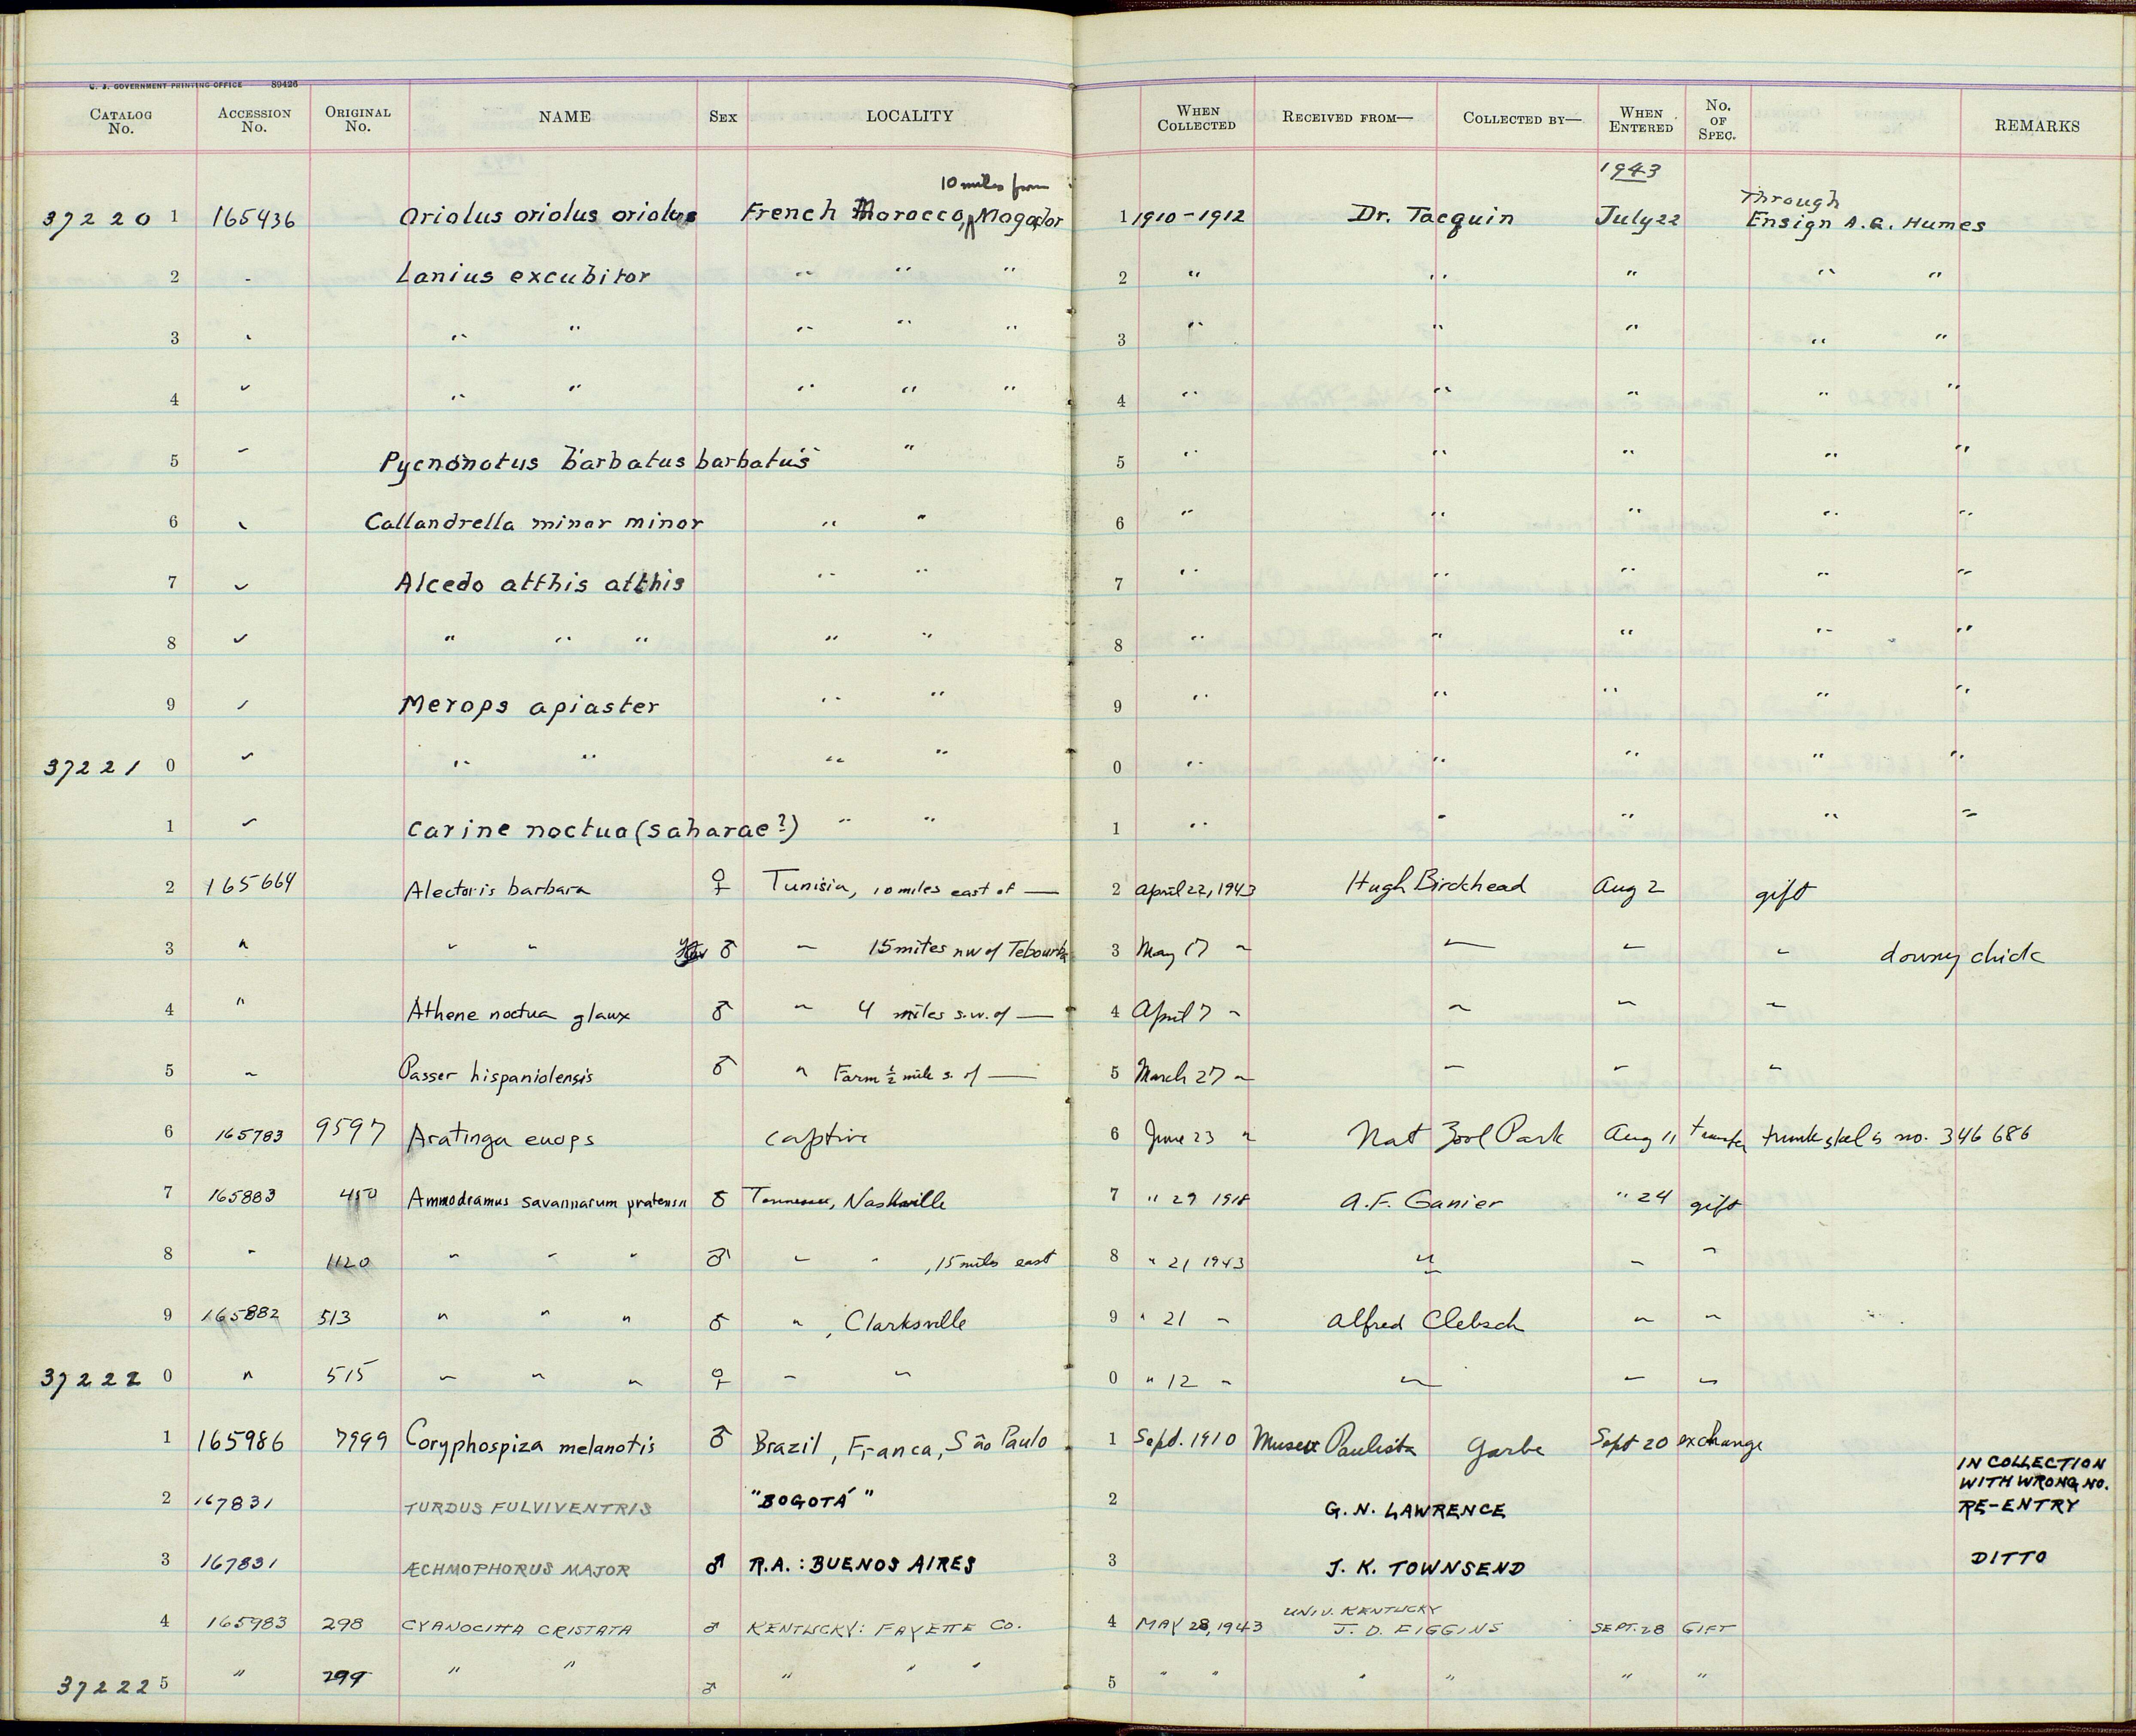 U. S. GOVERNMENT PRINTING OFFICE 89426
CATALOG No. ACCESSION No. ORIGINAL No. NAME SEX LOCALITY WHEN COLLECTED RECEIVED FROM— COLLECTED BY— WHEN ENTERED No. OF SPEC. REMARKS
1943
10 miles from
Through
37220 1 165436 Oriolus oriolus oriolus French Morocco, Mogador 1 1910-1912 Dr. Tacquin July 22 Ensign A.G. Humes
2 " Lanius excubitor " " " 2 " " " " "
3 " " " " " " 3 " " " " "
4 " " " " " " 4 " " " " "
5 " Pycnonotus barbatus barbatus " " 5 " " " " "
6 " Callandrella minor minor " " 6 " " " " "
7 " Alcedo atthis atthis " " 7 " " " " "
8 " " " " " " 8 " " " " "
9 " Merops apiaster " " 9 " " " " "
37221 0 " " " " " 0 " " " " "
1 " Carine noctua (saharae?) " " 1 " " " " "
2 165664 Alectoris barbara ♀ Tunisia, 10 miles east of — 2 April 22, 1943 Hugh Birckhead Aug 2 gift
3 " " " ♂ " 15 miles nw of Tebourba 3 May 17 " " " " downy chick
4 " Athene noctua glaux ♂ " 4 miles s.w. of — 4 April 7 " " " "
5 " Passer hispaniolensis ♂ " Farm ½ mile s. of — 5 March 27 " " " "
6 165783 9597 Aratinga euops captive 6 June 23 " Nat Zool Park Aug 11 transfer trunk skel is no. 346686
7 165883 450 Ammodramus savannarum pratensis ♂ Tennessee, Nashville 7 " 29 1918 A.F. Ganier " 24 gift
8 " 1120 " " " ♂ " " , 15 miles east 8 " 21 1943 " " "
9 165882 513 " " " ♂ " , Clarksville 9 " 21 " Alfred Clebsch " "
37222 0 " 515 " " " ♀ " " 0 " 12 " " " "
1 165986 7999 Coryphospiza melanotis ♂ Brazil, Franca, São Paulo 1 Sept. 1910 Museu Paulista Garbe Sept 20 exchange
IN COLLECTION
WITH WRONG NO.
2 167831 TURDUS FULVIVENTRIS "BOGOTÁ" 2 G. N. LAWRENCE RE-ENTRY
3 167831 ÆCHMOPHORUS MAJOR ♂ R.A.: BUENOS AIRES 3 J. K. TOWNSEND DITTO
UNIV. KENTUCKY
4 165983 298 CYANOCITTA CRISTATA ♂ KENTUCKY: FAYETTE CO. 4 MAY 28, 1943 J. D. FIGGINS SEPT. 28 GIFT
37222 5 " 299 " " ♂ " " " 5 " " " " " "